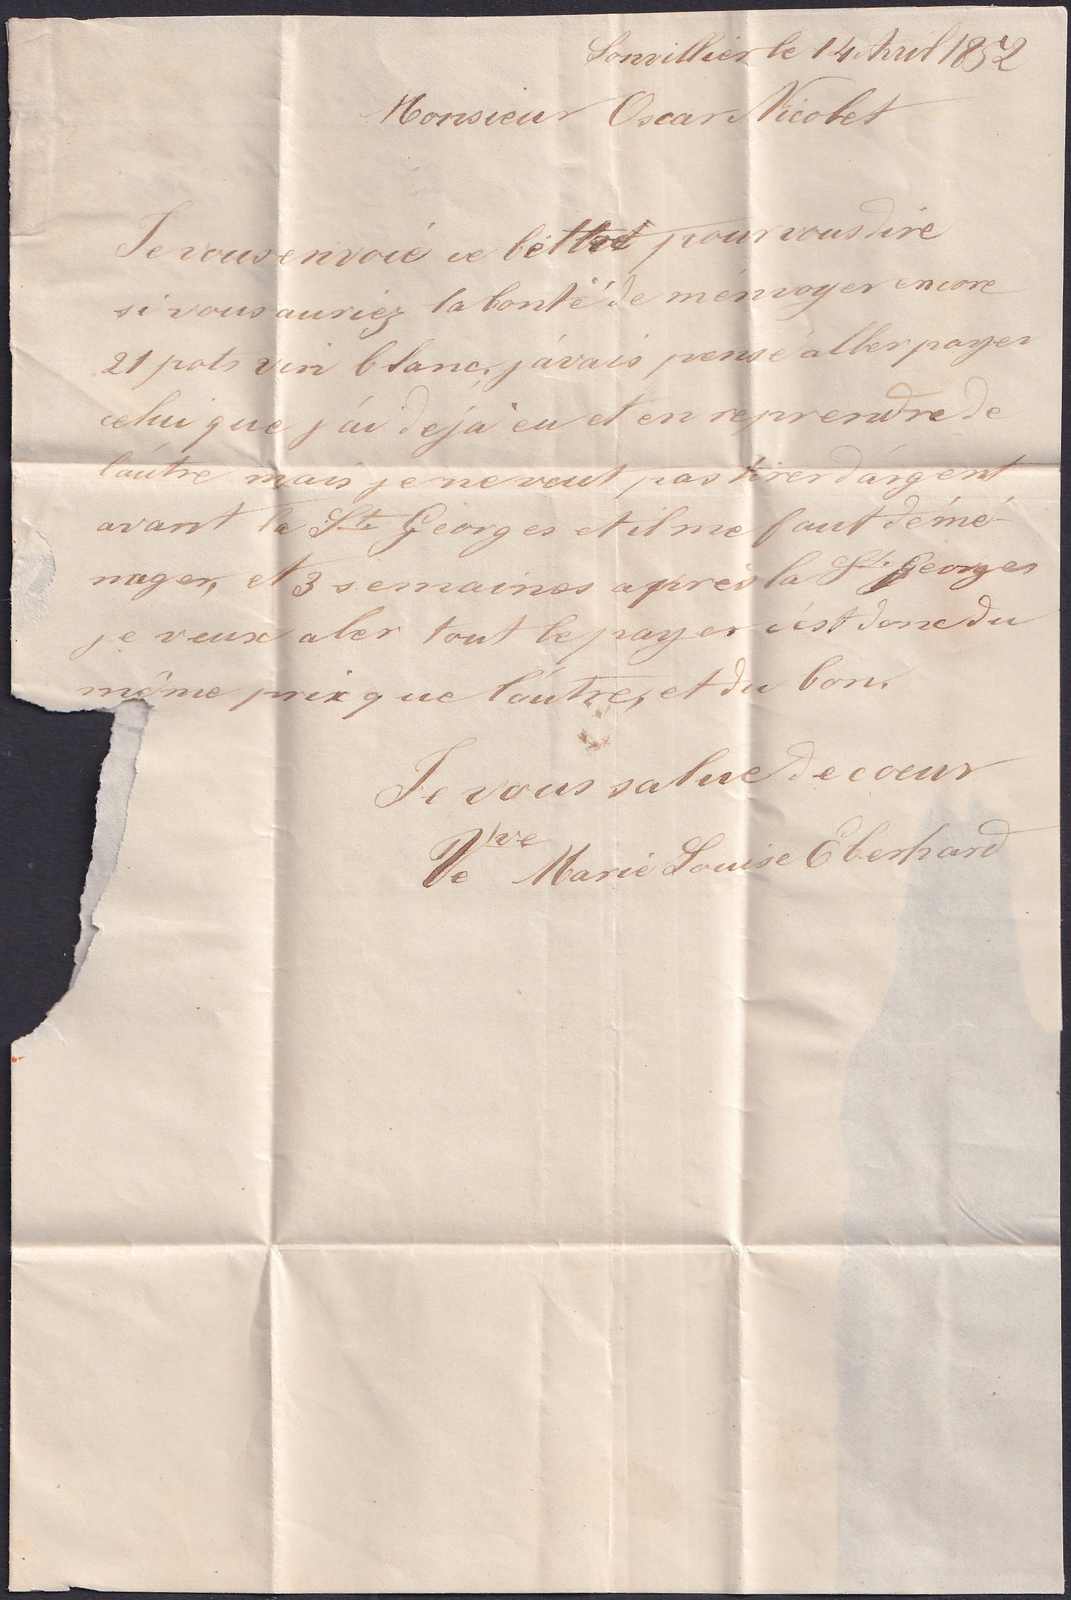 Sonvillier le 14 Avril 1852
Monsieur Oscar Nicolet
Je vous envoié ce pour vous dire
si vous auriez la bonté de ménvoyer encore
21 pots vin blanc, j'avais pensé aller payer
celui que j'ai déjà eu et en reprendre de
l'autre mais je ne veut pas tirer d'argent
avant la St. Georges et il me faut démé-
nager, et 3 semaines après la St. Georges
je veux aler tout le payer c'est donc du
même prix que l'autre, et du bon.
Je vous salue de coeur
Vve Marie Louise Eberhard